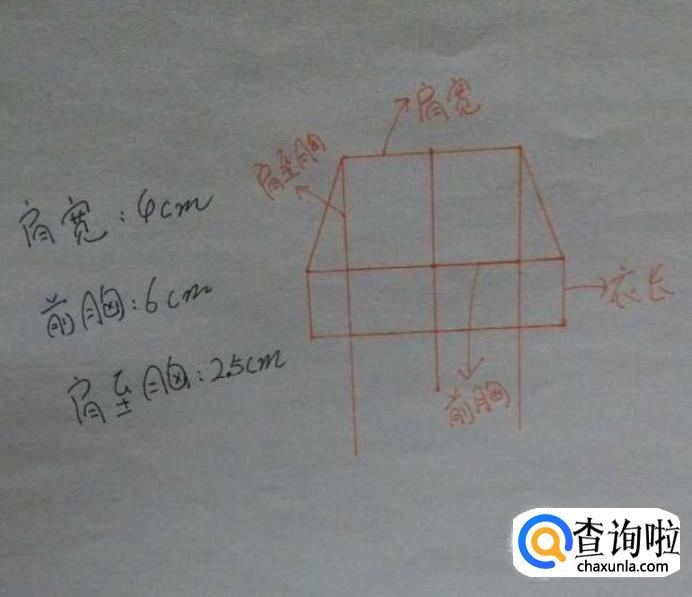 肩宽
肩至胸
肩宽:4cm
前胸:6cm
衣长
肩至胸:2.5cm
前胸
查询啦
chaxunla.com